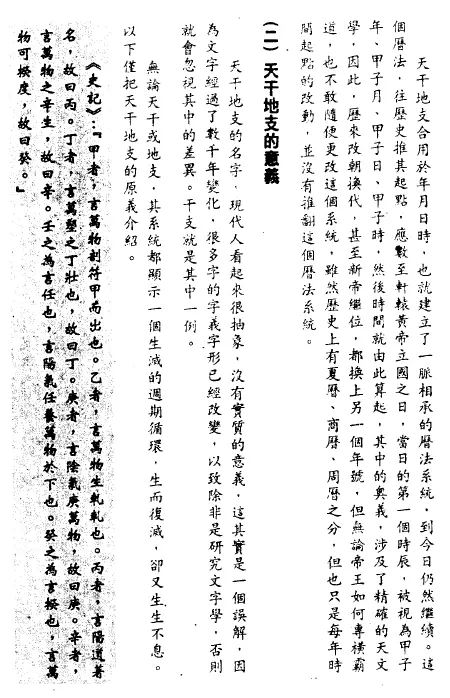 天干地支合用於年月日時，也就建立了一脈相承的曆法系統，到今日仍然繼續。這
個曆法，往歷史推其起點，應數至軒轅黃帝立國之日，當日的第一個時辰，被視為甲子
年、甲子月、甲子日、甲子時，然後時間就由此算起，其中的奧義，涉及了精確的天文
學，因此，歷來改朝換代，甚至新帝繼位，都換上另一個年號，但無論帝王如何專橫霸
道，也不敢隨便更改這個系統，雖然歷史上有夏曆、商曆、周曆之分，但也只是每年時
間起點的改動，並沒有推翻這個曆法系統。
(二) 天干地支的意義
天干地支的名字，現代人看起來很抽象，沒有實質的意義，這其實是一個誤解，因
為文字經過了數千年變化，很多字的字義字形已經改變，以致除非是研究文字學，否則
就會忽視其中的差異。干支就是其中一例。
無論天干或地支，其系統都顯示一個生滅的週期循環，生而復滅，卻又生生不息。
以下僅把天干地支的原義介紹。
《史記》：「甲者，言萬物剖符甲而出也。乙者，言萬物生軋軋也。丙者，言陽道著
名，故曰丙。丁者，言萬物之丁壯也，故曰丁。庚者，言陰氣庚萬物，故曰庚。辛者，
言萬物之辛生，故曰辛。壬之為言任也，言陽氣任養萬物於下也。癸之為言揆也，言萬
物可揆度，故曰癸。」